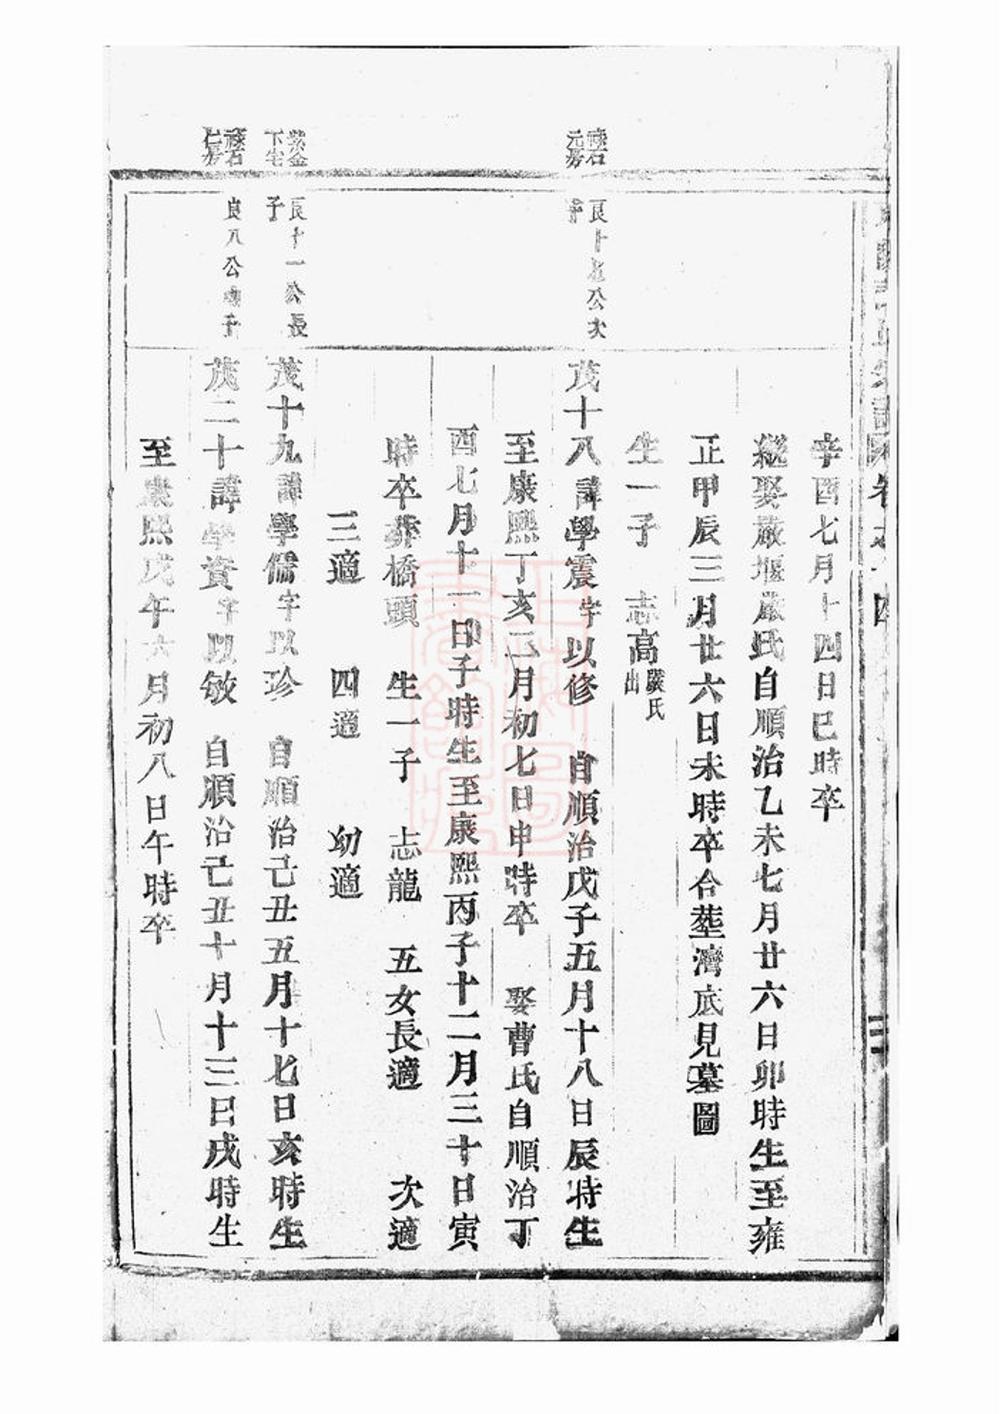 辛酉七月十四日巳時卒
繼娶嚴堰嚴氏自順治乙未七月廿六日卯時生至雍
正甲辰三月廿六日未時卒合塟濟底見墓圖
生一子 志高 嚴氏出
良十 公次子
茂十八諱學震字以修 自順治戊子五月十八日辰時生
至康熙丁亥二月初七日申時卒 娶曹氏自順治丁
酉七月十一日子時生至康熙丙子十二月三十日寅
時卒葬橋頭 生一子 志龍 五女長適 次適
三適 四適 幼適
紫金下宅
良十一公長子
茂十九諱學儒字以珍 自順治己丑五月十七日亥時生
良八公 子
茂二十諱學資字以敏 自順治己丑十月十三日戌時生
至康熙戊午六月初八日午時卒